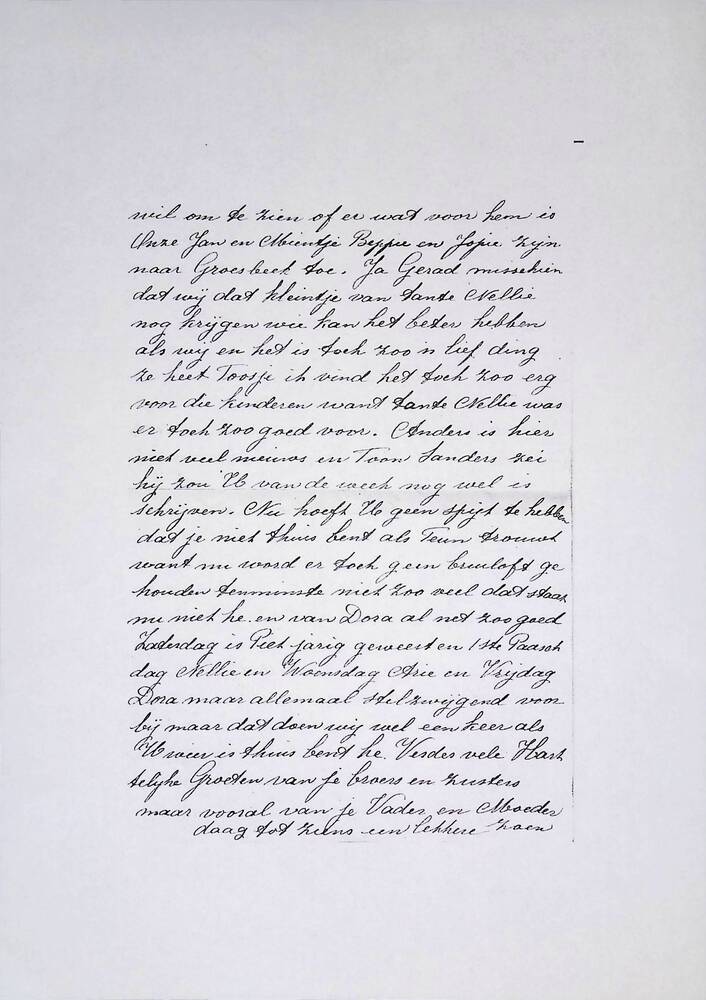 wil om te zien of er wat voor hem is
Onze Jan en Mientje Beppie en Jopie zijn
naar Groesbeek toe. Ja Gerad misschien
dat wij dat kleintje van tante Nellie
nog krijgen wie kan het beter hebben
als wij en het is toch zoo'n lief ding
ze heet Toosje ik vind het toch zoo erg
voor die kinderen want tante Nellie was
er toch zoo goed voor. Anders is hier
niet veel nieuws en Toon Sanders zei
hij zou U van de week nog wel is
schrijven. Nu hoeft U geen spijt te hebben
dat je niet thuis bent als Teun trouwt
want nu word er toch geen bruiloft ge
houden tenminste niet zoo veel dat staat
nu niet he. en van Dora al net zoo goed
Zaterdag is Piet jarig geweest en 1ste Paasch
dag Nellie en Woensdag Arie en Vrijdag
Dora maar allemaal stilzwijgend voor
bij maar dat doen wij wel een keer als
U weer is thuis bent he. Verder vele Hart
telijke Groeten van je broers en zusters
maar vooral van je Vader en Moeder
daag tot ziens een lekkere zoen